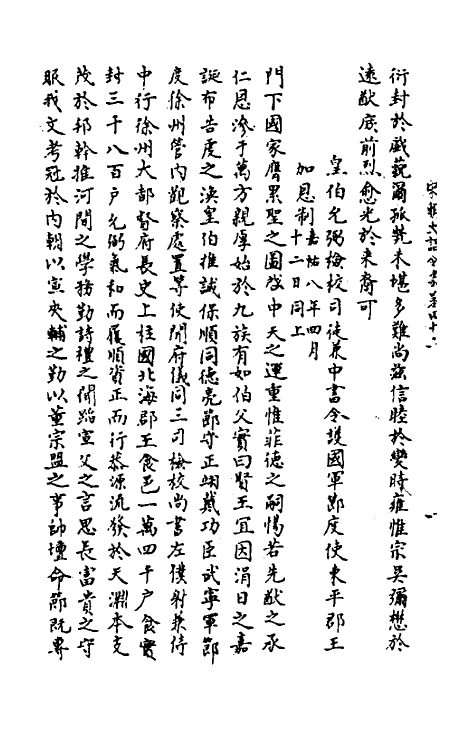 宋朝大詔令集卷四十一
衍封於戲藐爾孤煢未堪多難尚茲信睦於變時雍惟宗英彌懋於
遠猷庶前烈愈光於來裔可
皇伯允弼檢校司徒兼中書令護國軍節度使東平郡王
加恩制嘉祐八年四月
十二日同上
門下國家膺累聖之圖啟中天之運重惟菲德之嗣惕若先猷之承
仁恩滲于萬方親厚始於九族有如伯父實曰賢王宜因涓日之嘉
誕布告虔之渙皇伯推誠保順同德亮節守正翊戴功臣武寧軍節
度徐州管內觀察處置等使開府儀同三司檢校尚書左僕射兼侍
中行徐州大都督府長史上柱國北海郡王食邑一萬四千戶食實
封三千八百戶允弼氣和而履順資正而行恭源流發於天淵本支
茂於邦幹推河間之學務勤詩禮之聞蹈宣父之言思長富貴之守
眂我文考冠於內朝以宣夾輔之勤以董宗盟之事帥壇命節既專